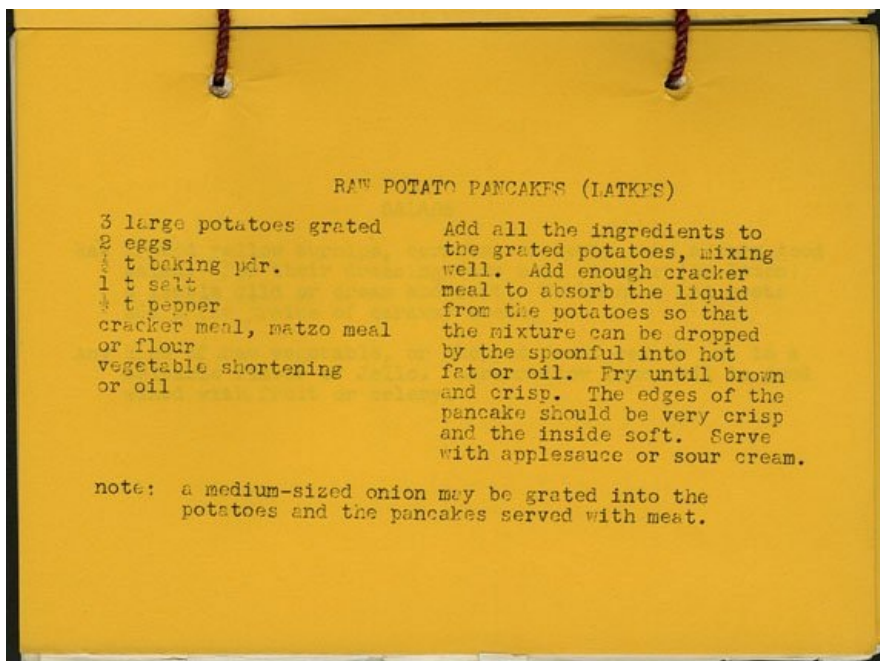 RAW POTATO PANCAKES (LATKES)
3 large potatoes grated
2 eggs
t baking pdr.
1 t salt
t pepper
cracker meal, matzo meal
or flour
vegetable shortening
or oil
Add all the ingredients to
the grated potatoes, mixing
well. Add enough cracker
meal to absorb the liquid
from the potatoes so that
the mixture can be dropped
by the spoonful into hot
fat or oil. Fry until brown
and crisp. The edges of the
pancake should be very crisp
and the inside soft. Serve
with applesauce or sour cream.
note: a medium-sized onion may be grated into the
potatoes and the pancakes served with meat.